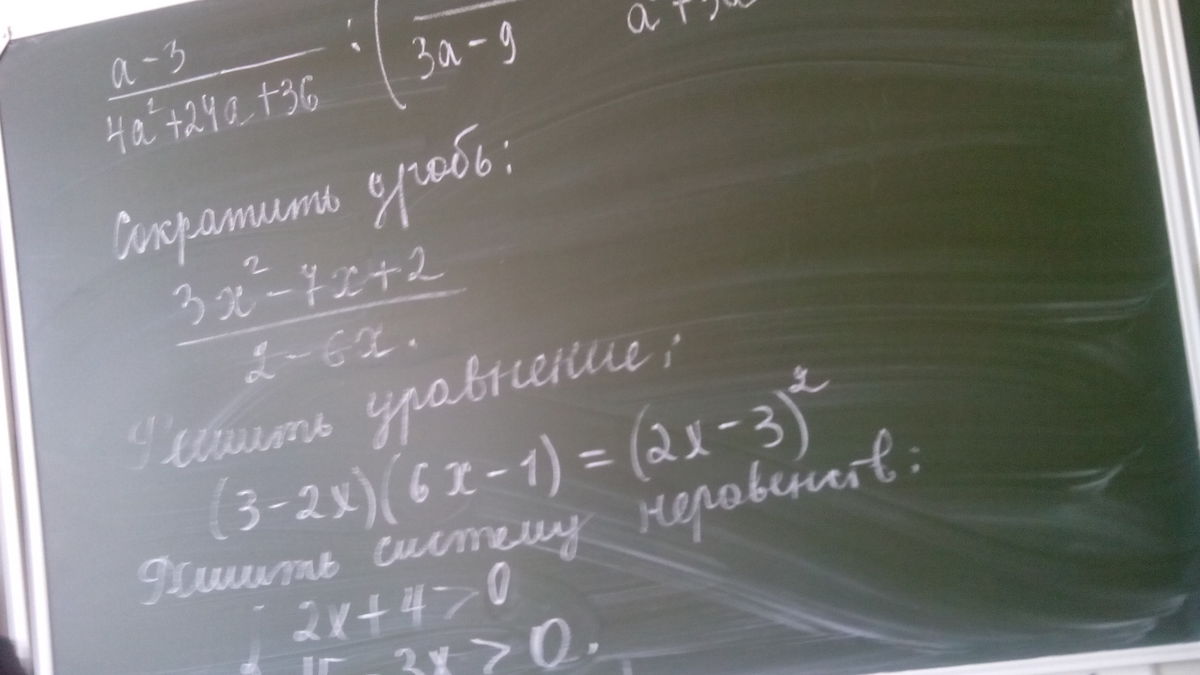 a-3 / 4a²+24a+36 : ( / 3a-9
Сократить дробь:
3x²-7x+2 / 2-6x.
Решить уравнение:
(3-2x)(6x-1)=(2x-3)²
Решить систему неравенств:
2x+4>0
-3x>0.